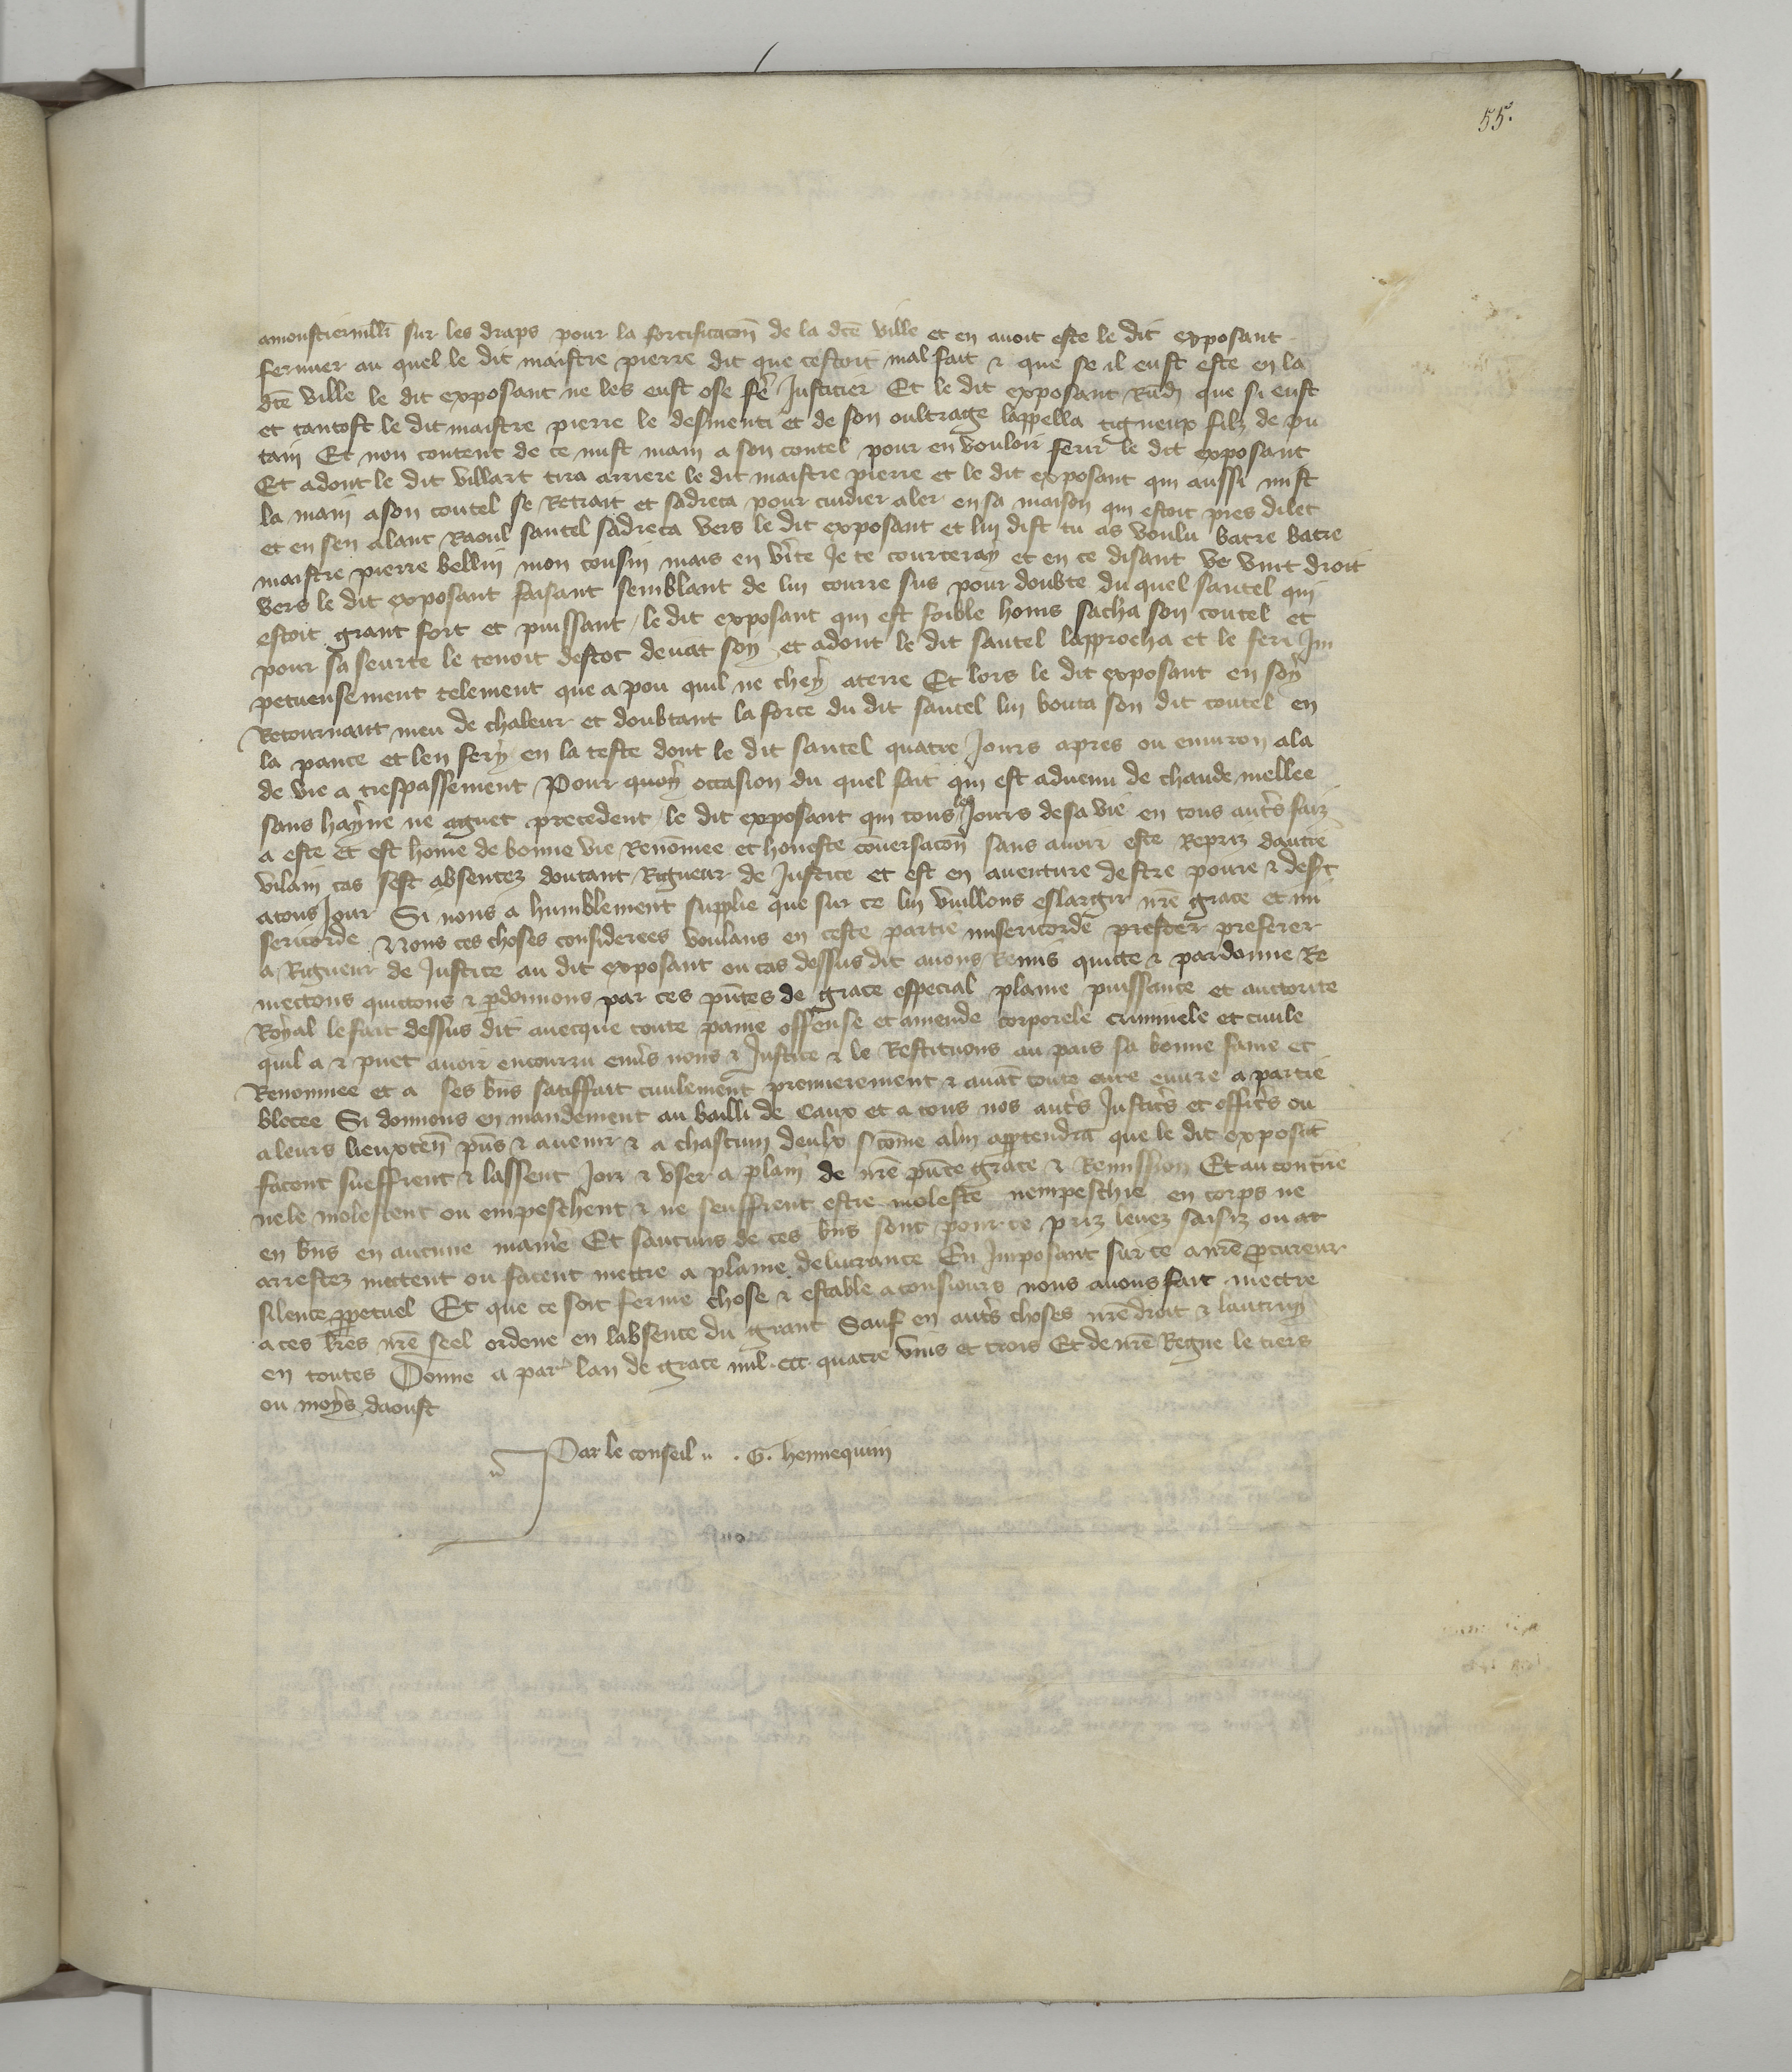 55.
amoustiervill̃ sur les draps pour la fortificacõn de la dcẽ ville et en avoit este le dit exposant
fermier au quel le dit maistre pierre dit que cestoit mal fait & que se il eust este en la
dcẽ ville le dit exposant ne les eust ose fẽ Justicier Et le dit exposant Rñdi que si eust
et tantost le dit maistre pierre le desmenti et de son oultrage lappella tigneux filz de pu
tain Et non content de ce mist main a son coutel pour en vouloir ferir le dit exposant
Et adont le dit villart tira arriere le dit maistre pierre et le dit exposant qui aussi mist
la main a son coutel se Retrait et sadreca pour cuidier aler en sa maison qui estoit pres dilec
et en sen alant Raoul sautel sadreca vers le dit exposant et lui dist tu as voulu batre batre
maistre pierre bellin mon cousin mais en vĩte Je te courceray et en ce disant ve vint droit
vers le dit exposant faisant semblant de lui courre sus pour doubte du quel sautel qui
estoit grant fort et puissant le dit exposant qui est foible homs sacha son coutel et
pour sa seurte le tenoit destoc devãt soy et adont le dit sautel lapprocha et le feri Im
petueusement telement que a pou quil ne chey a terre Et lors le dit exposant en soy
Retournant meu de chaleur et doubtant la force du dit sautel lui bouta son dit coutel en
la pance et len fery en la teste dont le dit sautel quatre Jours apres ou environ ala
de vie a trespassement Pour quoy occasion du quel fait qui est advenu de chaude mellee
sans hayne ne aguet precedent le dit exposant qui tous les Jours de sa vie en tous autrẽs faiz
a este et est home de bonne vie Renõmee et honeste cõversacõn sans avoir este Repriz dautre
vilain cas sest absentez doutant Rigueur de Justice et est en aventure destre povre & desert
a tous Jour Si nous a humblement supplie que sur ce lui vuillons eslargir nrẽ grace et mi
sericorde & Nous ces choses considerees voulans en ceste partie misericorde prester preferer
a Rigueur de Justice au dit exposant ou cas dessus dit avons Remis quitte & pardonne Re
mettons quittons & pdonnons par ces pñtes de grace especial plaine puissance et auctorite
Royal le fait dessus dit avecque toute paine offense et amende corporele criminele et civile
quil a & puet avoir encourru envs nous & Justice & le Restituons au pais sa bonne fame et
Renommee et a ses bñs satisffait civilement premierement & avãt toute euvre a partie
blecee Si donnons en mandement au bailli de Caux et a tous nos autrẽs Justicrs et officrs ou
a leurs lieuxteñ pñs & avenir & a chascun deulx si cõme a lui appartendra que le dit exposãt
facent sueffrent & lassent Joir & user a plain de nrẽ pñte grace & Remission Et au contrẽ
ne le molestent ou empeschent & ne seuffrent estre moleste nempeschie en corps ne
en bñs en aucune maniẽ Et saucuns de ces bñs sont pour ce priz levez saisiz ou ar
arrestez mettent ou facent mettre a plaine delivrance En Imposant sur ce a nrẽ pcureur
silence ppetuel Et que ce soit ferme chose & estable a tousjours nous avons fait mettre
a ces lrẽs nrẽ seel ordene en labsence du grant Sauf en autrẽs choses nrẽ droit & lautruy
en toutes Donne a par' lan de grace mil. ccc. quatre vins et trois Et de nrẽ Regne le tiers
ou moys daoust
Par le conseil . G. hennequin